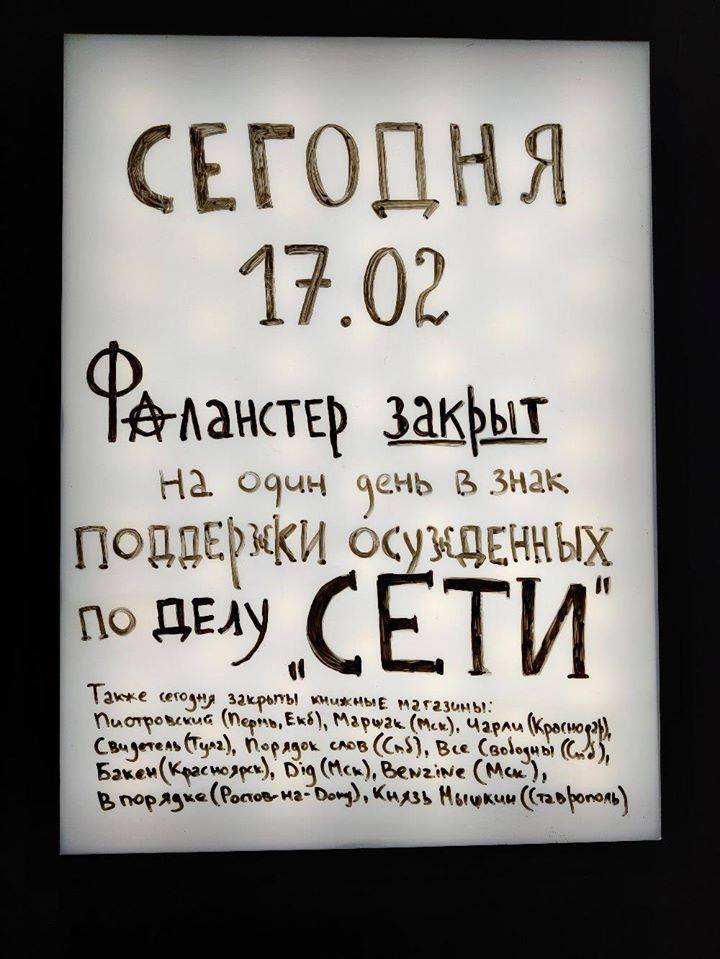 СЕГОДНЯ
17.02
Фаланстер закрыт
на один день в знак
ПОДДЕРЖКИ ОСУЖДЕННЫХ
по делу „СЕТИ“
Также сегодня закрыты книжные магазины:
Пиотровский (Пермь, Екб), Маршак (Мск), Чарли (Краснодар),
Свидетель (Тула), Порядок слов (Спб), Все Свободны (Спб),
Бакен (Красноярск), Dig (Мск), Benzine (Мск),
В порядке (Ростов-на-Дону), Князь Мышкин (Ставрополь)